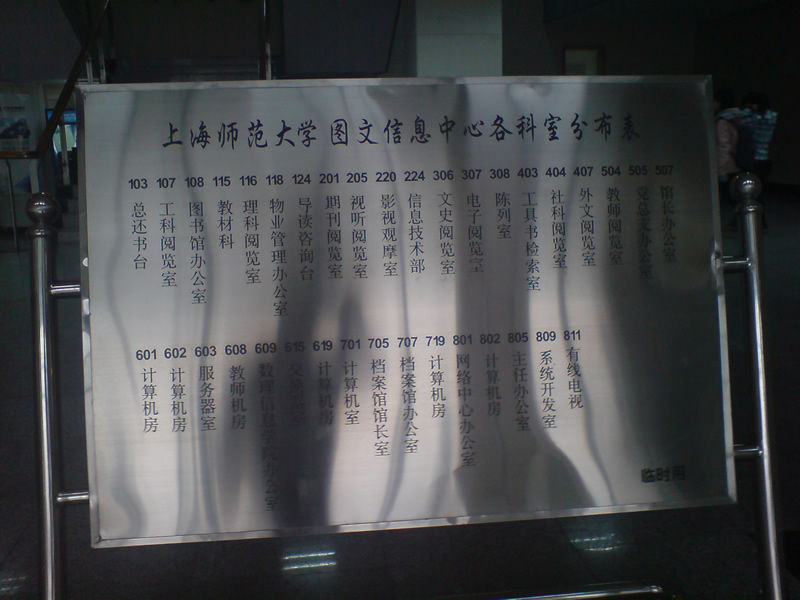 上海师范大学图文信息中心各科室分布表
103 总还书台
107 工科阅览室
108 图书馆办公室
115 教材科
116 理科阅览室
118 物业管理办公室
124 导读咨询台
201 期刊阅览室
205 视听阅览室
220 影视观摩室
224 信息技术部
306 文史阅览室
307 电子阅览室
308 陈列室
403 工具书检索室
404 社科阅览室
407 外文阅览室
504 教师阅览室
505 党总支办公室
507 馆长办公室
601 计算机房
602 计算机房
603 服务器室
608 教师机房
609 数理信息学院办公室
615
619 计算机房
701 计算机室
705 档案馆馆长室
707 档案馆办公室
719 计算机房
801 网络中心办公室
802 计算机房
805 主任办公室
809 系统开发室
811 有线电视
临时用